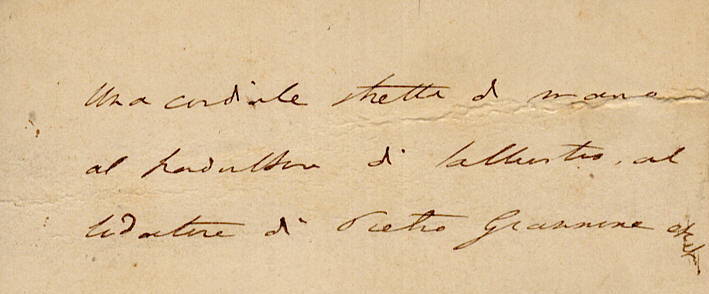 Una cordiale stretta di mano
al traduttore di Sallustio, al
lodatore di Pietro Giannone